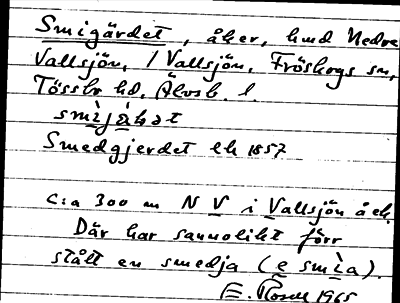 Smigärdet, åker, hmd Nedre
Vallsjön, / Vallsjön, Fröskogs sn,
Tössbo hd. Älvsb. l.
Smedgjerdet lk 1857
C:a 300 m N V i Vallsjön åck.
Där har sannolikt förr
stått en smedja (e smìa).
E. 1965